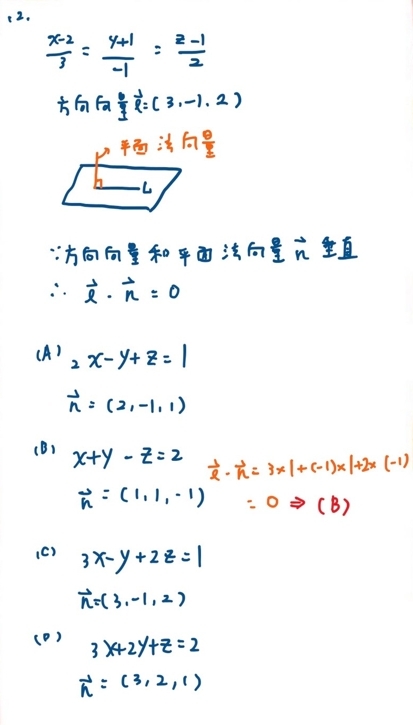 12.
x-2/3 = y+1/-1 = z-1/2
方向向量 l⃗=(3,-1,2)
平面法向量
L
∵方向向量和平面法向量 n⃗ 垂直
∴ l⃗·n⃗ = 0
(A) 2x-y+z=1
n⃗ = (2,-1,1)
(B) x+y-z=2
n⃗ = (1,1,-1)
l⃗·n⃗ = 3×1+(-1)×1+2×(-1)
= 0 ⇒ (B)
(C) 3x-y+2z=1
n⃗=(3,-1,2)
(D) 3x+2y+z=2
n⃗ = (3,2,1)